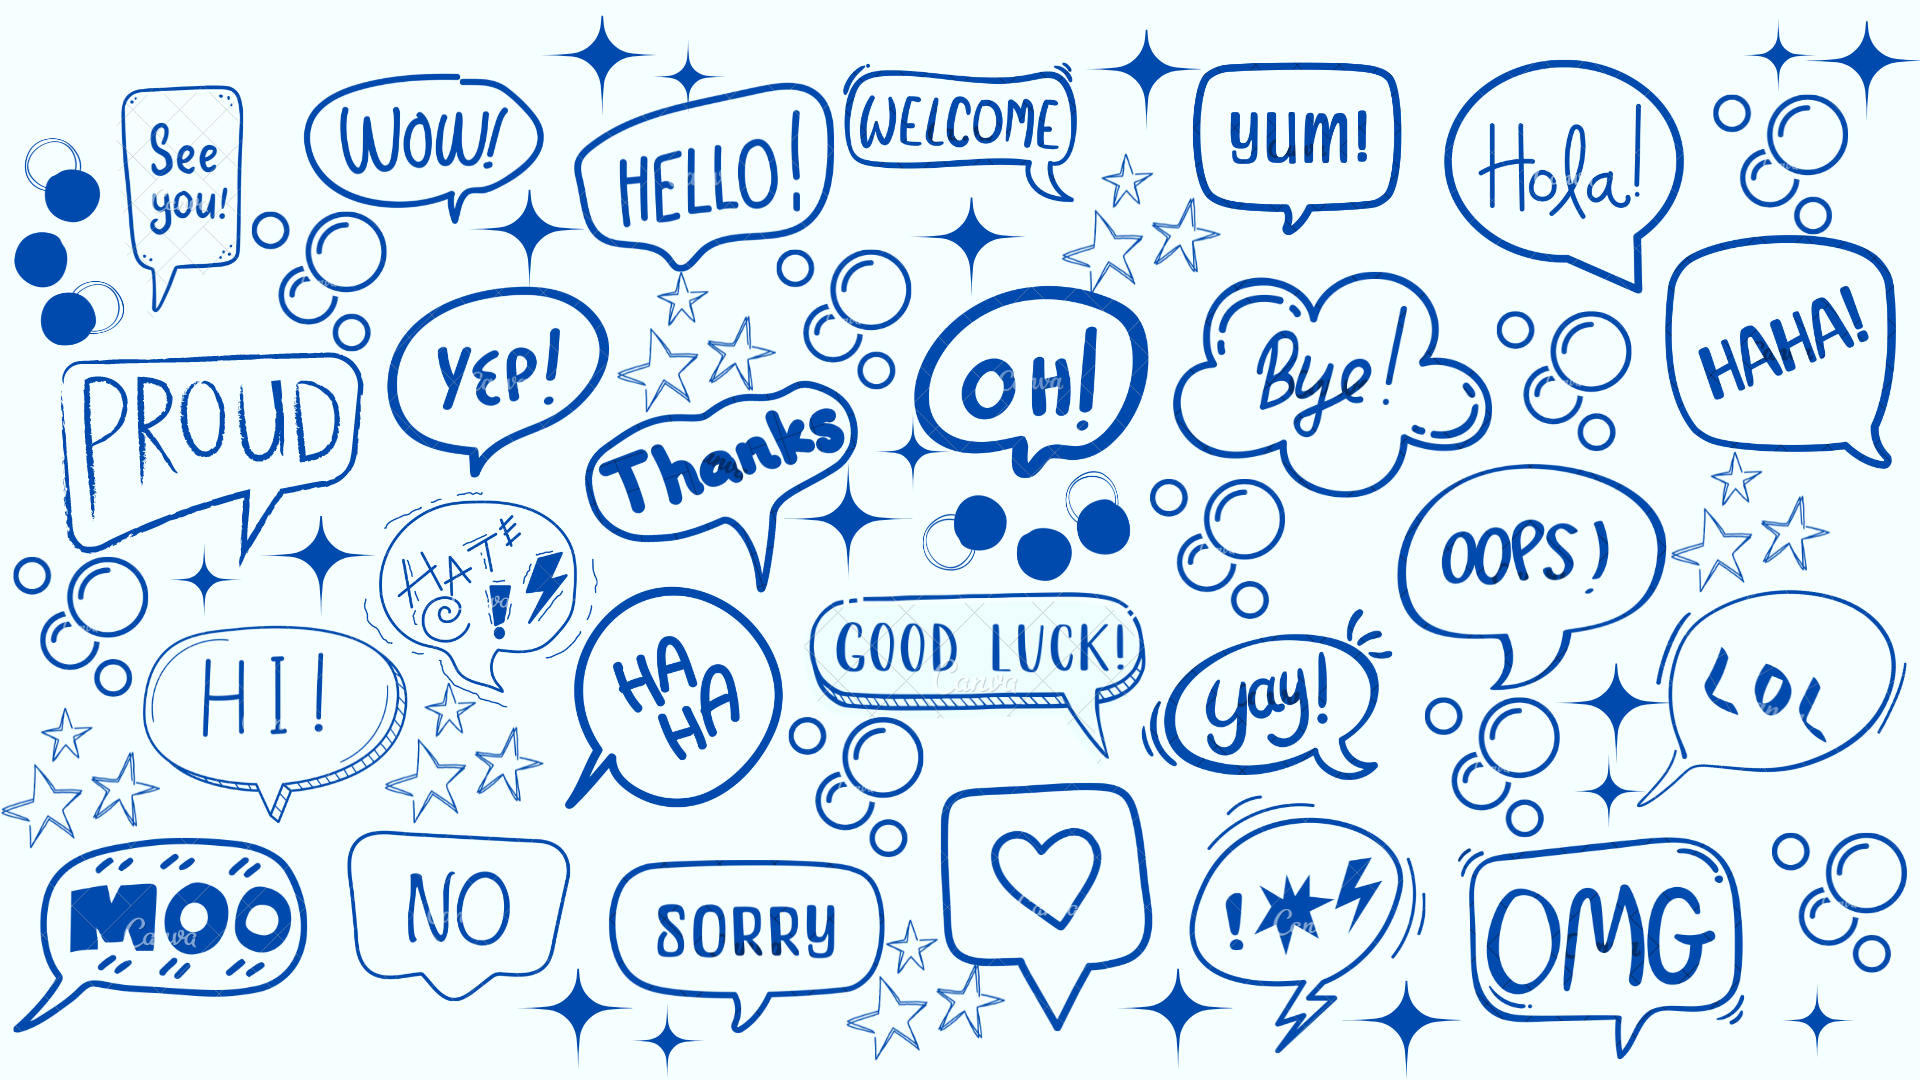 See
you!
WOW!
HELLO!
WELCOME
yum!
Hola!
HAHA!
PROUD
YEP!
Thanks
OH!
Bye!
HATE
!
OOPS!
HI!
HA
HA
GOOD LUCK!
yay!
LOL
MOO
NO
SORRY
!
OMG
Canva